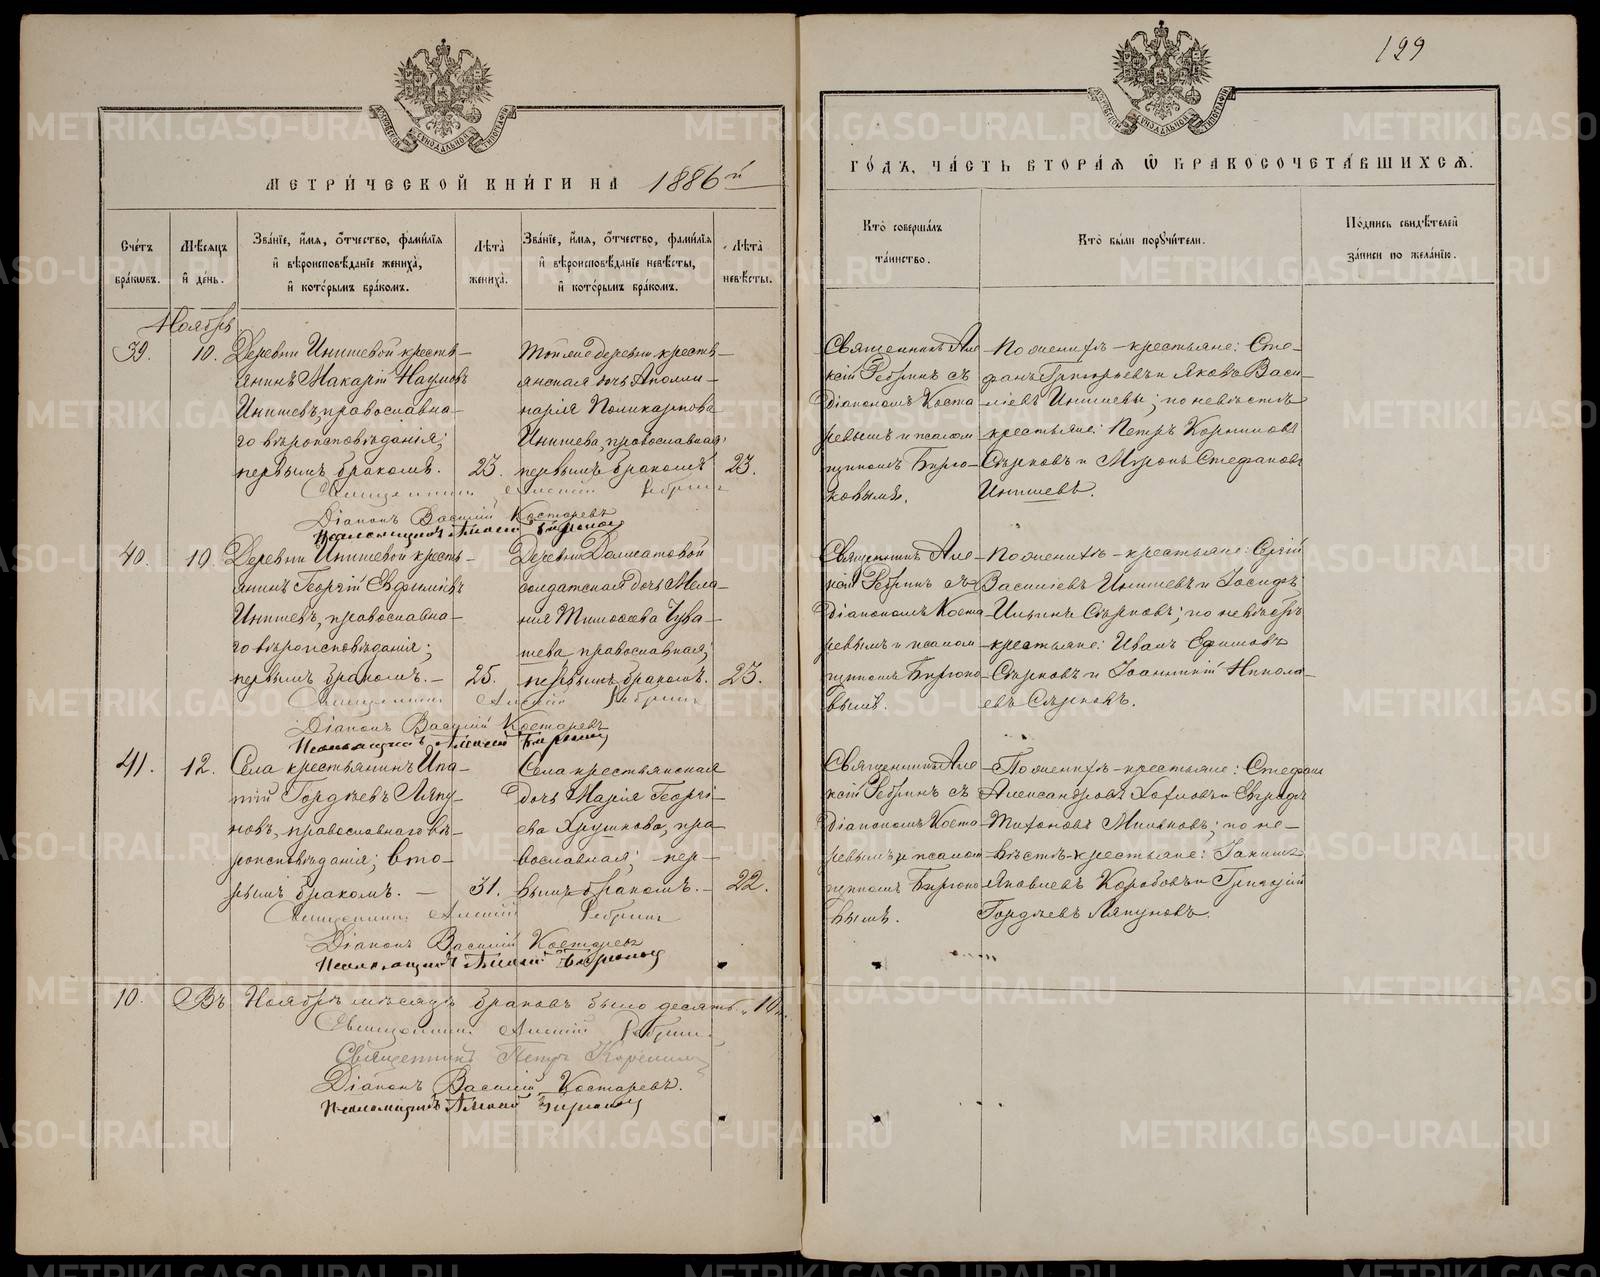 199
МЕТРИЧЕСКОЙ КНИГИ НА 1886й
ГОДЪ, ЧАСТЬ ВТОРАЯ Ѡ БРАКОСОЧЕТАВШИХСЯ.
Счетъ браковъ.
Мѣсяцъ и день.
Званіе, имя, отчество, фамилія
и вѣроисповѣданіе жениха,
и которымъ бракомъ.
Лѣта жениха.
Званіе, имя, отчество, фамилія
и вѣроисповѣданіе невѣсты,
и которымъ бракомъ.
Лѣта невѣсты.
Кто совершалъ
таинство.
Кто были поручители.
Подпись свидѣтелей
записи по желанію.
Ноябрь
39.
10.
Деревни Инишевой кресть-
янинъ Макарій Наумовъ
Инишевъ, православна-
го вѣроисповѣданія;
первымъ бракомъ.
23.
Тойже деревни кресть-
янская дочь Аполли-
нарія Поликарпова
Инишева, православная;
первымъ бракомъ
23.
Священникъ Але
ксій Ребринъ съ
діакономъ Коста
ревымъ и псалом
щикомъ Бирю-
ковымъ.
По женихѣ - крестьяне: Сте-
фанъ Григорьевъ и Яковъ Васи-
ліевъ Инишевы; по невѣстѣ
крестьяне: Петръ Корниловъ
Сѣрковъ и Миронъ Стефановъ
Инишевъ.
Священникъ Алексій Ребринъ
Діаконъ Василій Костаревъ
Псаломщикъ Алексій Бирюковъ
40.
10.
Деревни Инишевой кресть-
янинъ Георгій Евфиміевъ
Инишевъ, православна-
го вѣроисповѣданія;
первымъ бракомъ. -
25.
Деревни Далматовой
солдатская дочь Мела-
нія Тимофеева Чува-
шева православная;
первымъ бракомъ.
23.
Священникъ Але-
ксій Ребринъ съ
діакономъ Коста
ревымъ и псалом
щикомъ Бирюко
вымъ.
По женихѣ - крестьяне: Сергій
Василіевъ Инишевъ и Іосифъ
Ильинъ Сѣрковъ; по невѣстѣ
крестьяне: Иванъ Ефимовъ
Сѣрковъ и Іоанникій Никола-
евъ Сѣрковъ.
Священникъ Алексій Ребринъ
Діаконъ Василій Костаревъ
Псаломщикъ Алексій Бирюковъ
41.
12.
Села крестьянинъ Ипа-
тій Гордѣевъ Ляпу-
новъ, православнаго вѣ-
роисповѣданія; вто-
рымъ бракомъ. -
31.
Села крестьянская
дочь Марія Георгі-
ева Хрушкова, пра
вославная; пер-
вымъ бракомъ. -
22.
Священникъ Але
ксій Ребринъ съ
діакономъ Коста
ревымъ и псалом
щикомъ Бирюко
вымъ.
По женихѣ - крестьяне: Стефанъ
Александровъ и
Тихоновъ по не-
вѣстѣ - крестьяне:
Яковлевъ Коробовъ и Григорій
Гордѣевъ Ляпуновъ.
Священникъ Алексій Ребринъ
Діаконъ Василій Костаревъ
Псаломщикъ Алексій Бирюковъ
10.
Въ Ноябрѣ мѣсяцѣ браковъ было десять „10".
Священникъ Алексій Ребринъ
Священникъ Петръ
Діаконъ Василій Костаревъ.
Псаломщикъ Алексій Бирюковъ
METRIKI.GASO-URAL.RU